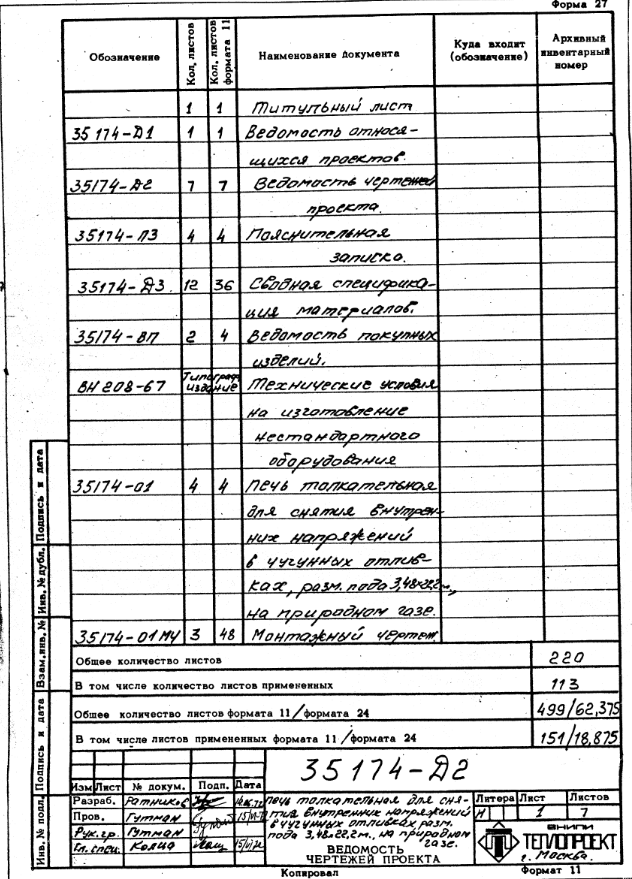 Форма 27
Обозначение Кол. листов Кол. листов формата 11 Наименование документа Куда входит (обозначение) Архивный инвентарный номер
1 1 Титульный лист
35174-Д1 1 1 Ведомость относя-
щихся проектов.
35174-Д2 7 7 Ведомость чертежей
проекта.
35174-ПЗ 4 4 Пояснительная
записка.
35174-Д3. 12 36 Сводная специфика-
ция материалов.
35174-ВП 2 4 Ведомость покупных
изделий.
ВН 208-67 Типограф. издание Технические условия
на изготовление
нестандартного
оборудования
35174-01 4 4 Печь толкательная
для снятия внутрен-
них напряжений
в чугунных отлив-
ках, разм. пода 3,48×22,2м.,
на природном газе.
35174-01МЧ 3 48 Монтажный чертеж
Общее количество листов 220
В том числе количество листов примененных 113
Общее количество листов формата 11/формата 24 499/62,375
В том числе листов примененных формата 11/формата 24 151/18,875
Инв. № подл. Подпись и дата Взам. инв. № Инв. № дубл. Подпись и дата
35174-Д2
Изм Лист № докум. Подп. Дата
Разраб. Ратников
Пров. Гутман
Рук. гр. Гутман
Гл. спец. Колца
Печь толкательная для сня-
тия внутренних напряжений
в чугунных отливках разм.
пода 3,48×22,2м., на природном
газе.
ВЕДОМОСТЬ
ЧЕРТЕЖЕЙ ПРОЕКТА
Литера Лист Листов
И 1 7
ВНИПИ
ТЕПЛОПРОЕКТ
г. Москва.
Копировал Формат 11